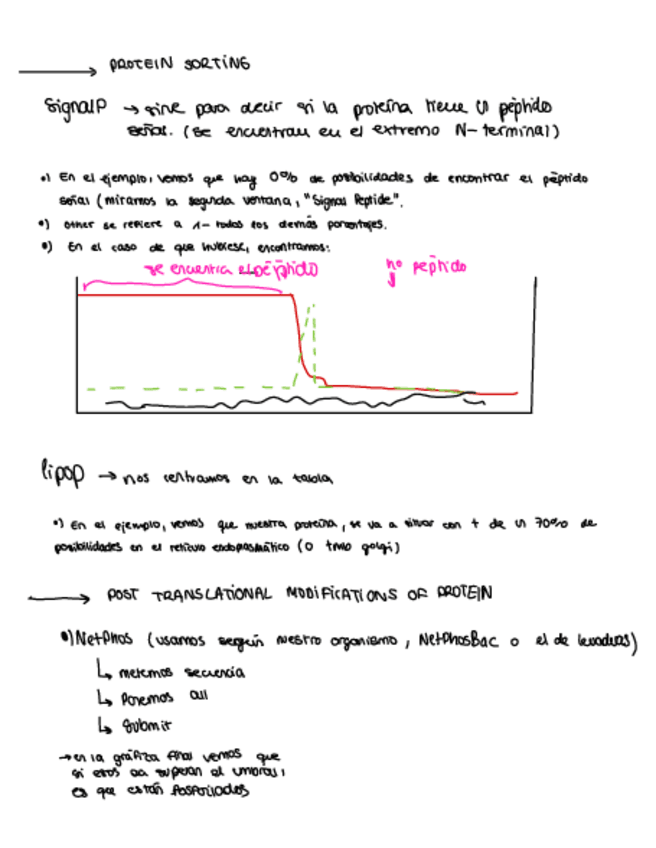 → PROTEIN SORTING
SignalP → sirve para decir si la proteína tiene un péptido
señal. (se encuentran en el extremo N-terminal)
•) En el ejemplo, vemos que hay 0% de posibilidades de encontrar el péptido
señal (miramos la segunda ventana, "Signal Peptide".
•) other se refiere a 1- todos los demás porcentajes.
•) En el caso de que hubiese, encontramos:
se encuentra el péptido
no péptido
lipop → nos centramos en la tabla
•) En el ejemplo, vemos que nuestra proteína, se va a situar con + de un 70% de
posibilidades en el retículo endoplasmático (o tmb golgi)
→ POST TRANSLATIONAL MODIFICATIONS OF PROTEIN
•) NetPhos (usamos según nuestro organismo, NetPhosBac o el de levaduras)
↳ metemos secuencia
↳ Ponemos all
↳ Submit
→ en la gráfica final vemos que
si estos aa superan el umbral,
es que están fosforilados